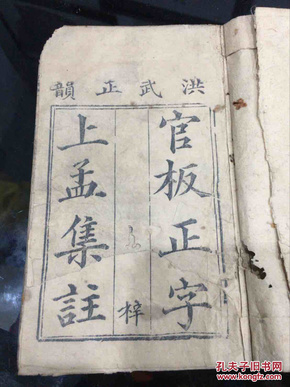 洪武正韻
官板正字
梓
上孟集註
孔夫子旧书网